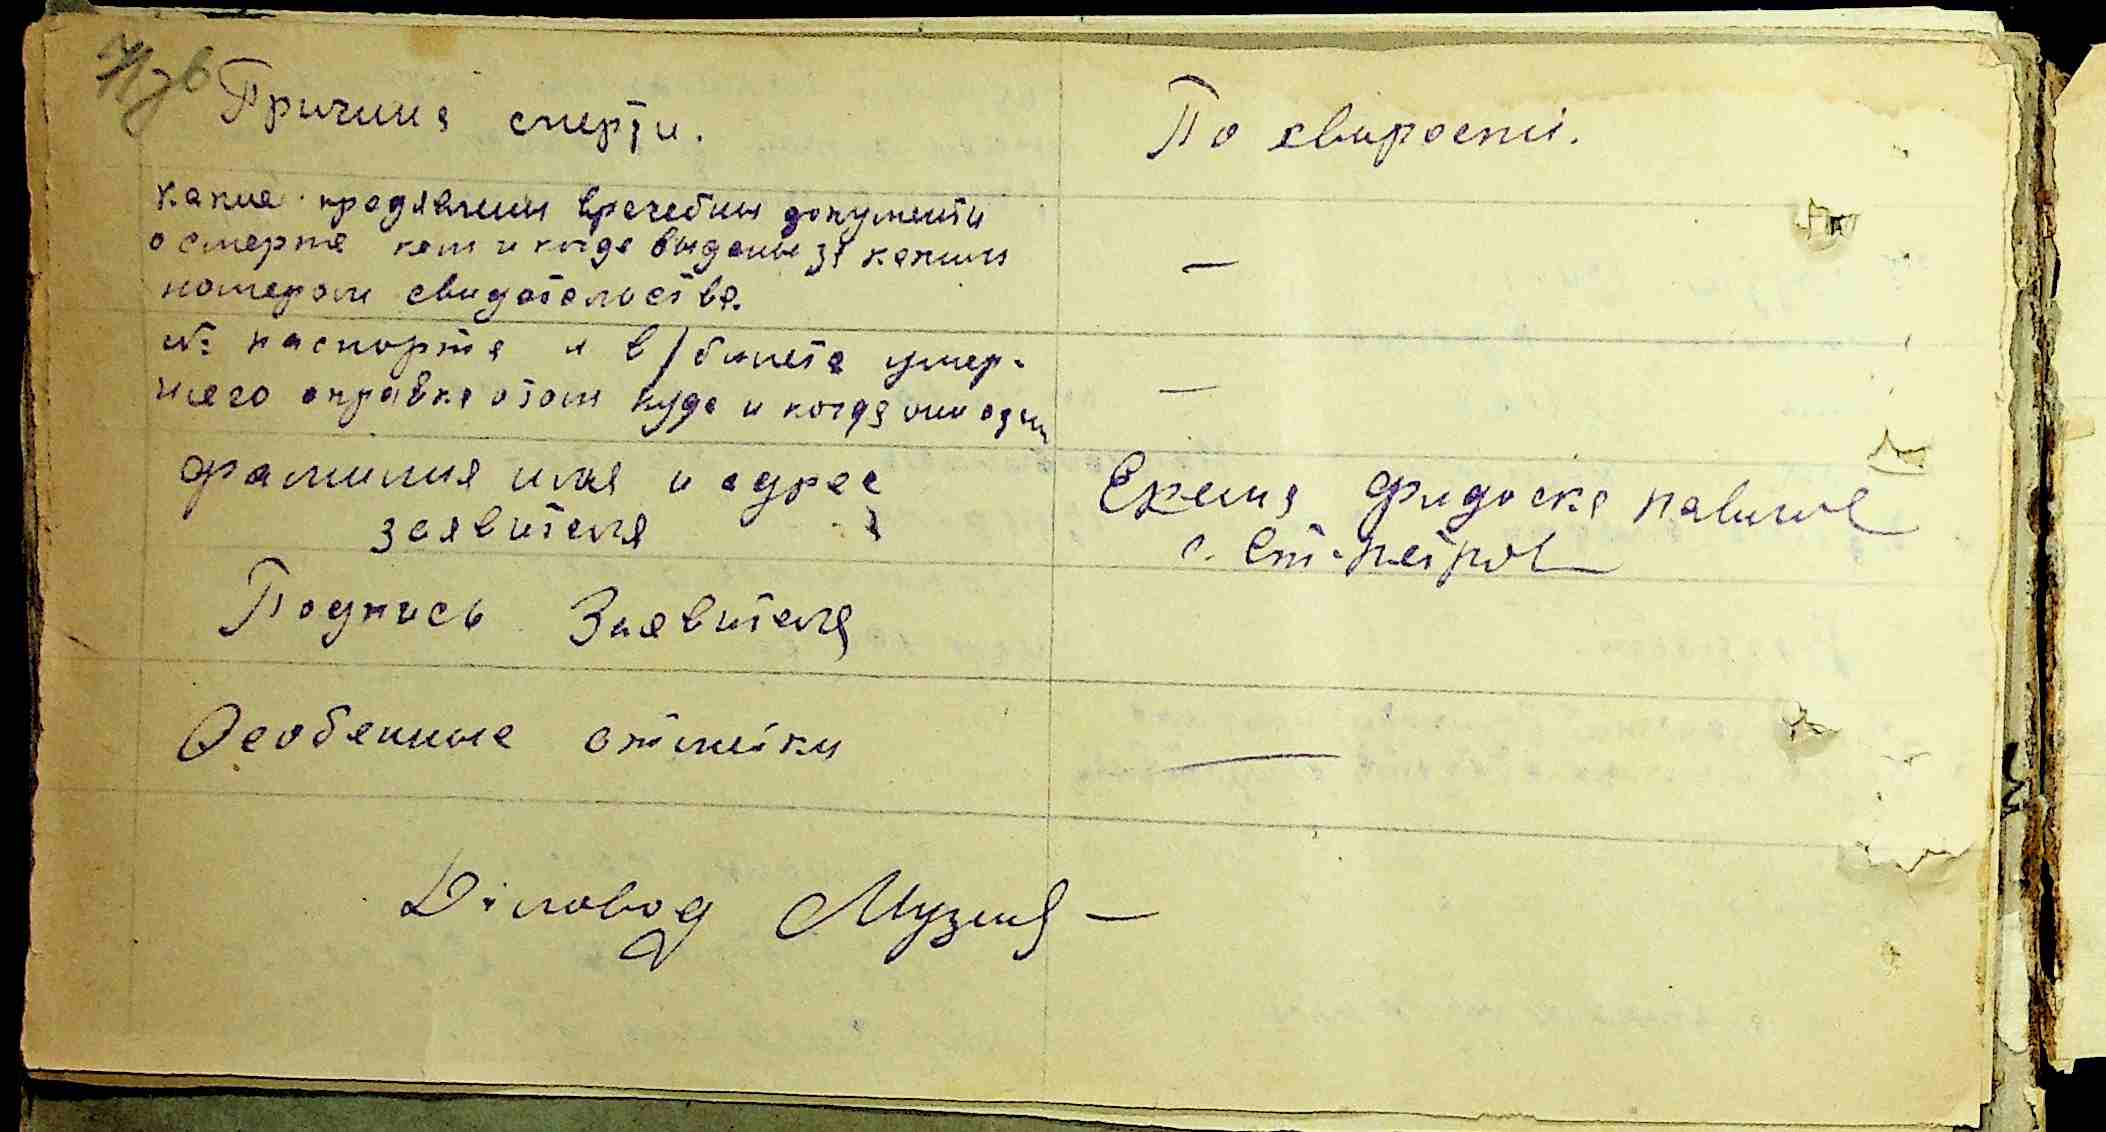 Причина смерти.
По хворости.
какие предявлены врачебны документи
о смерте кем и когда выдены за каким
номером свидетельства.
№ паспорта и в/билета умер-
шего справка о том куда и когда они сдан
фамилия имя и адрес
заявителя
Ерема Фидоска Павлов
с. Ст-Петров
Подпись Заявителя
Особенные отметки
Діловод Музия